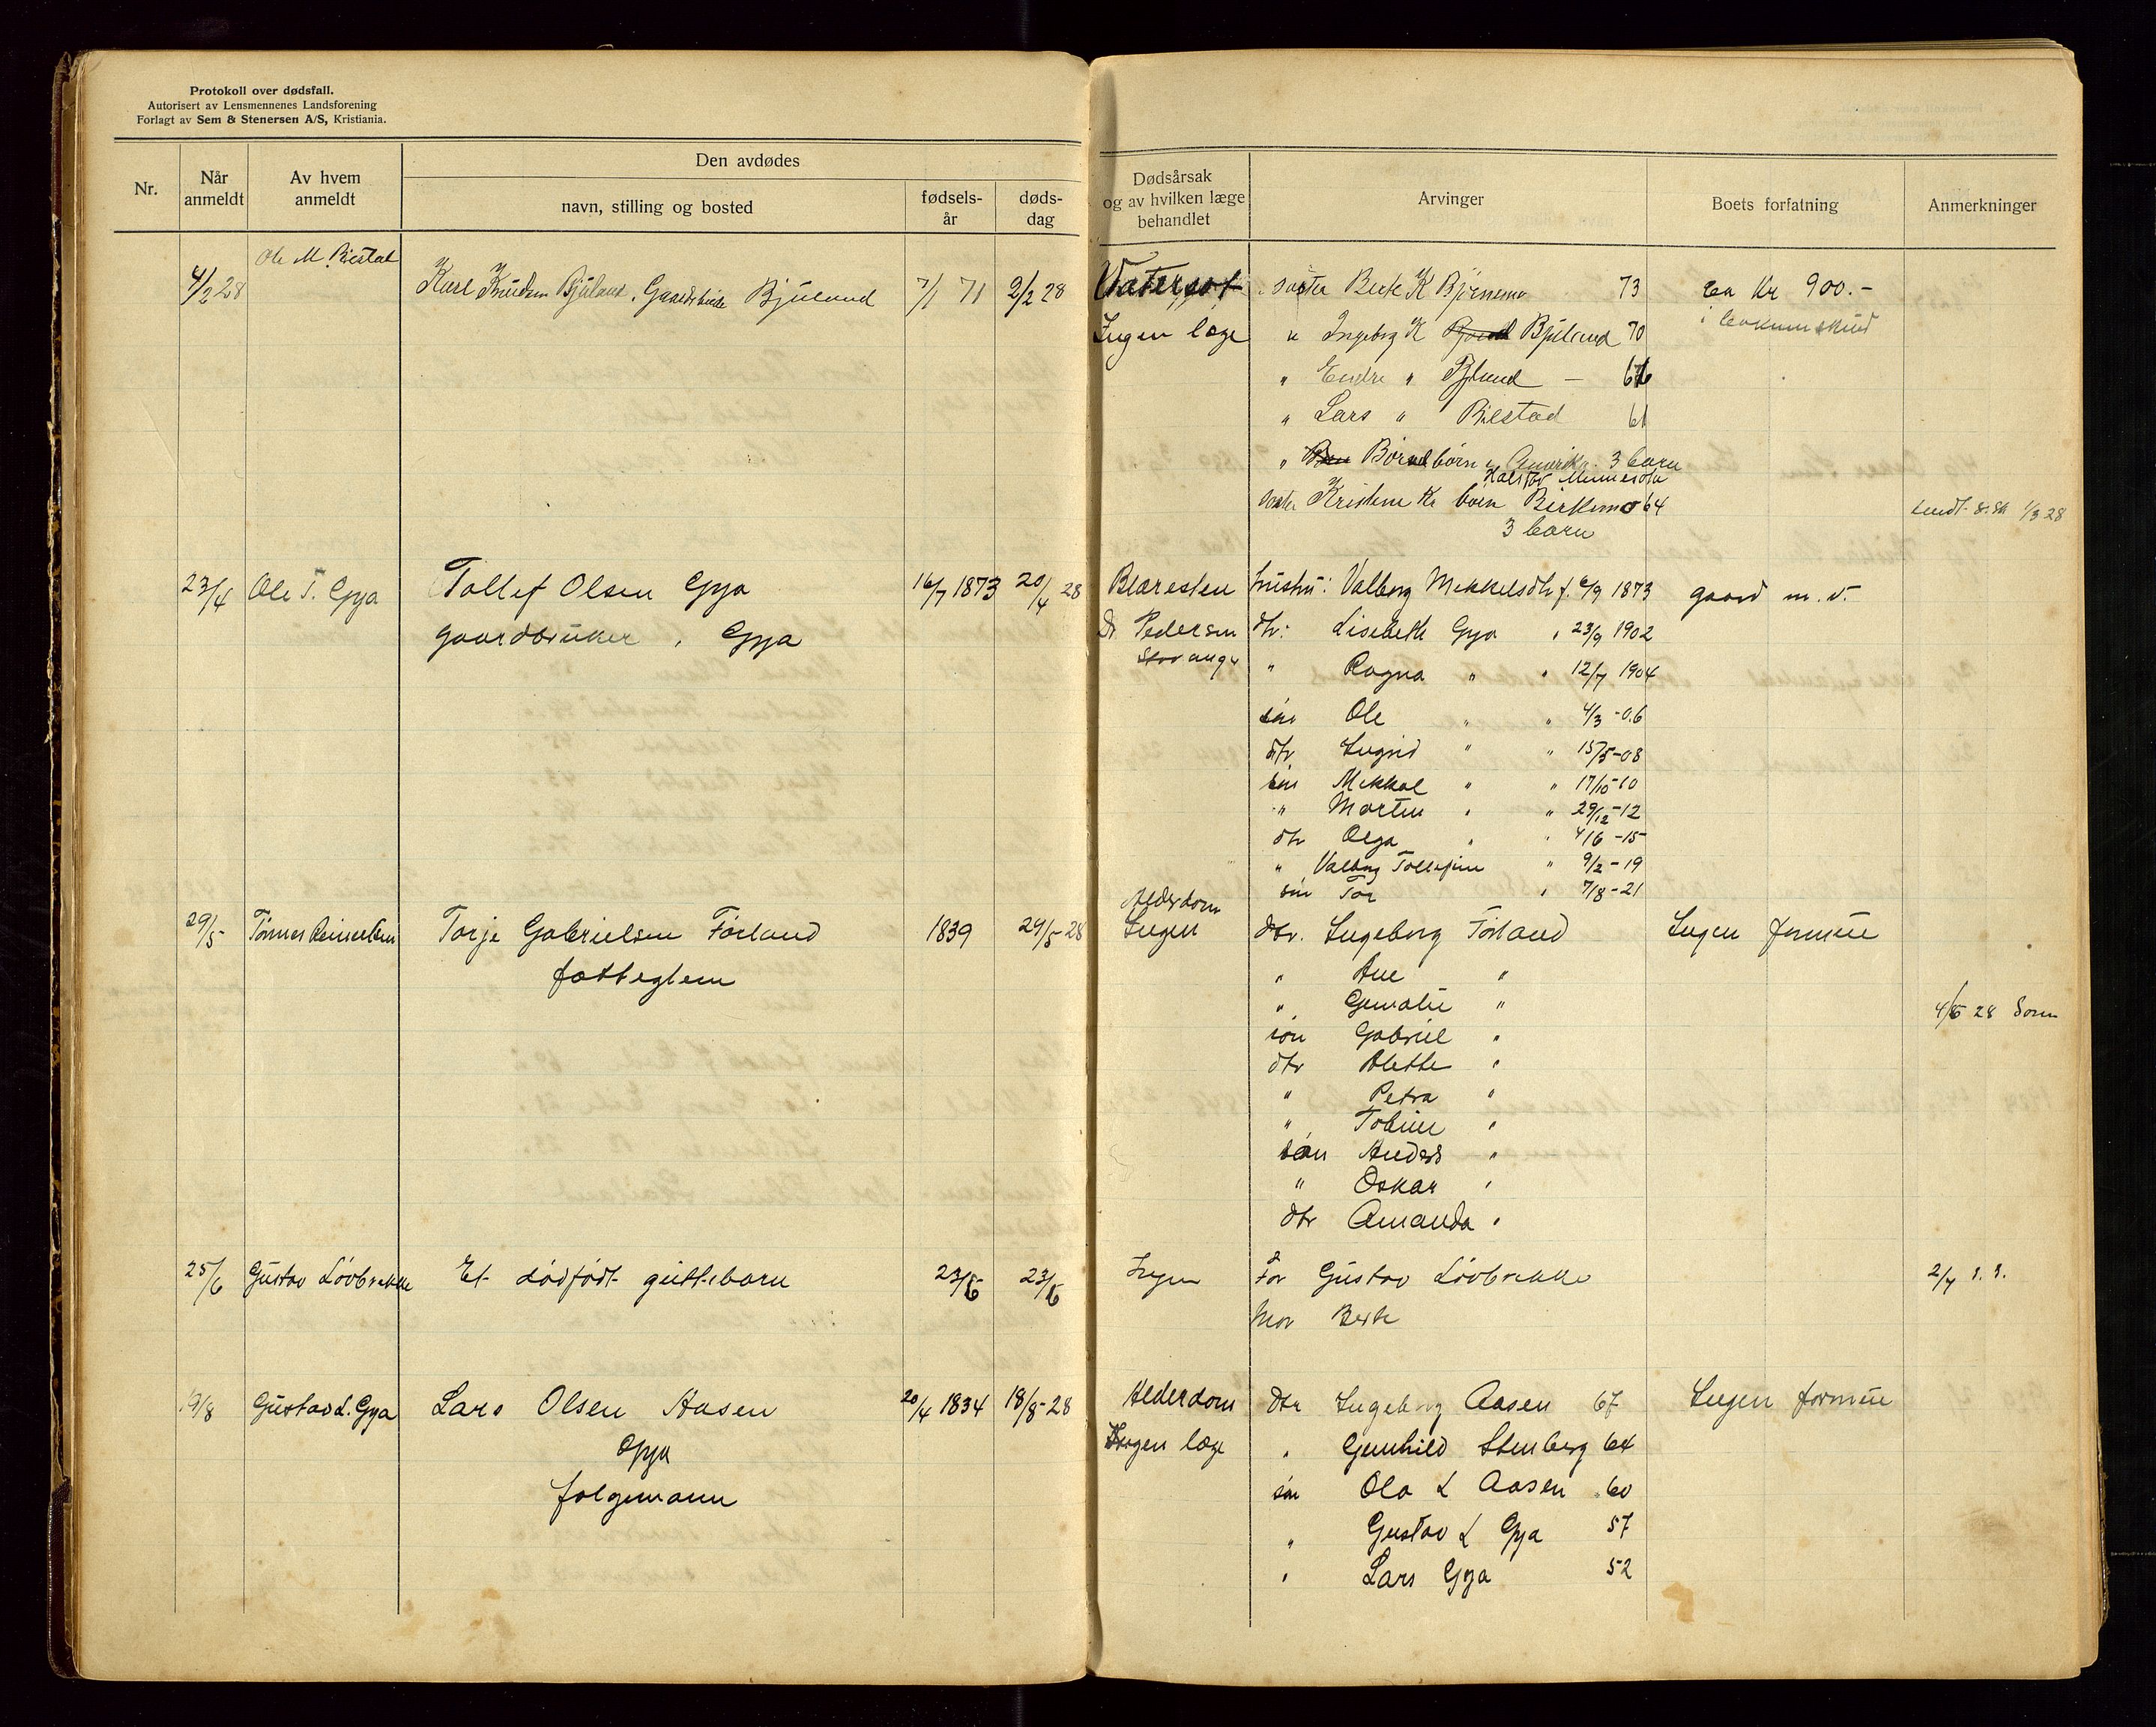 Protokoll over dødsfall.
Autorisert av Lensmennenes Landsforening
Forlagt av Sem & Stenersen A/S, Kristiania.
Nr.
Når anmeldt
Av hvem anmeldt
Den avdødes
navn, stilling og bosted
fødsels-
år
døds-
dag
Dødsårsak
og av hvilken læge
behandlet
Arvinger
Boets forfatning
Anmerkninger
4/2 28 Ole M. Bilstad Karl Knudsen Bjuland, Bjuland 7/1 71 2/2 28 Vatersot Berte K 73 ca Kr 900.-
Ingen læge " Ingeborg K Bjuland 70 i
" Endre " 
" Lars " Bilstad 61
" børn i Amerika. 3 barn
Minnesota
Kr barn 64
3 barn
sendt 1/3 28
23/4 Ole T. Gya Tollef Olsen Gya 16/7 1873 20/4 28 Blæresten hustru: Valborg Mikkelsdtr f. 6/9 1873 gaard m.v.
gaardbruker, Gya Dr. Pedersen dtr: Lisebeth Gya " 23/9 1902
Stavanger " Ragna " " 12/7 1904
søn Ole " " 4/3 -06
dtr Ingrid " " 15/5 -08
søn Mikkal " " 17/10 -10
" Morten " " 29/12 -12
dtr Olga " " 4/6 -15
" Valborg " 9/2 -19
søn Tor " 7/8 -21
Alderdom
29/5 Tønnes Torje GabrielsenFørland 1839 24/5 28 Ingen dtr. Ingeborg Førland Ingen formue
fattiglem " Ane "
" "
4/6 28
søn Gabriel "
dtr Alette "
" Petra "
" Tobine "
søn Anders "
" Oskar "
dtr Amanda "
25/6 Gustav Løvbrekke Et dødfødt guttebarn 23/6 23/6 Ingen Far Gustav Løvbrekke 2/7 s.s.
Mor Berte
19/8 Gustav L. Gya Lars Olsen Aasen 20/4 1834 18/8 -28 Alderdom dtr Ingeborg Aasen 67 Ingen formue
Gya Ingen læge " Gunhild Stenberg 64
folgemann søn Ola L Aasen 60
" Gustav L Gya 57
" Lars Gya 52